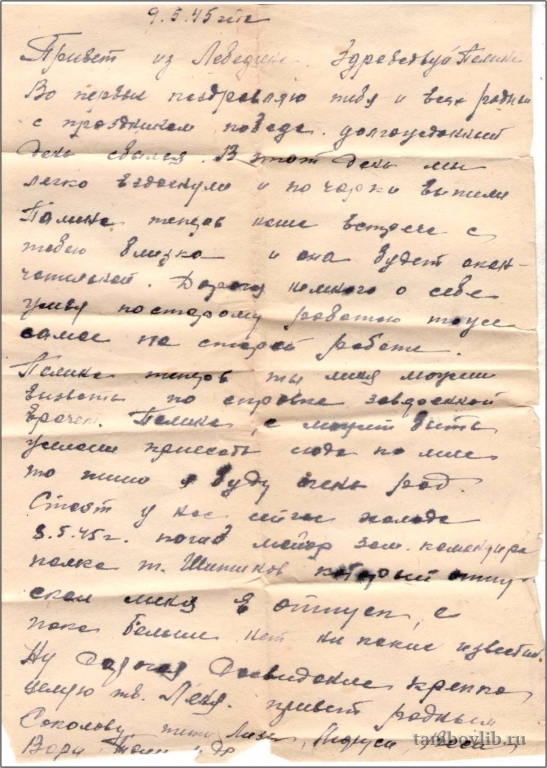 9.5.45 г.
Привет из Лебедина. Здравствуй Полина
Во первых поздравляю тебя и всех родных
с праздником победе. долгожданный
день сбылся. В этот день мы
легко вздохнули и по чарки выпили
Полина теперь наше встреча с
тобою близка и она будет окон-
чательной. Дорогая немного о себе
у меня по старому работою тоже
самое на старой работе.
Полина теперь ты меня можеш
вызвать по справке заводской
врачей. Полина, а может быть
приехать сюда ко мне
то пиши я буду очень рад.
Стоят у нас сейчас холода
8.5.45 г. погиб майор зам. командира
полка т. который отпу-
скал меня в отпуск, а
пока больше нет ни каких известий.
Ну Дорогая Досвидание крепко
целую тв. Лёня. привет родным
Соколову, тёти Лизе,
Вари, Толи и др
tambovlib.ru